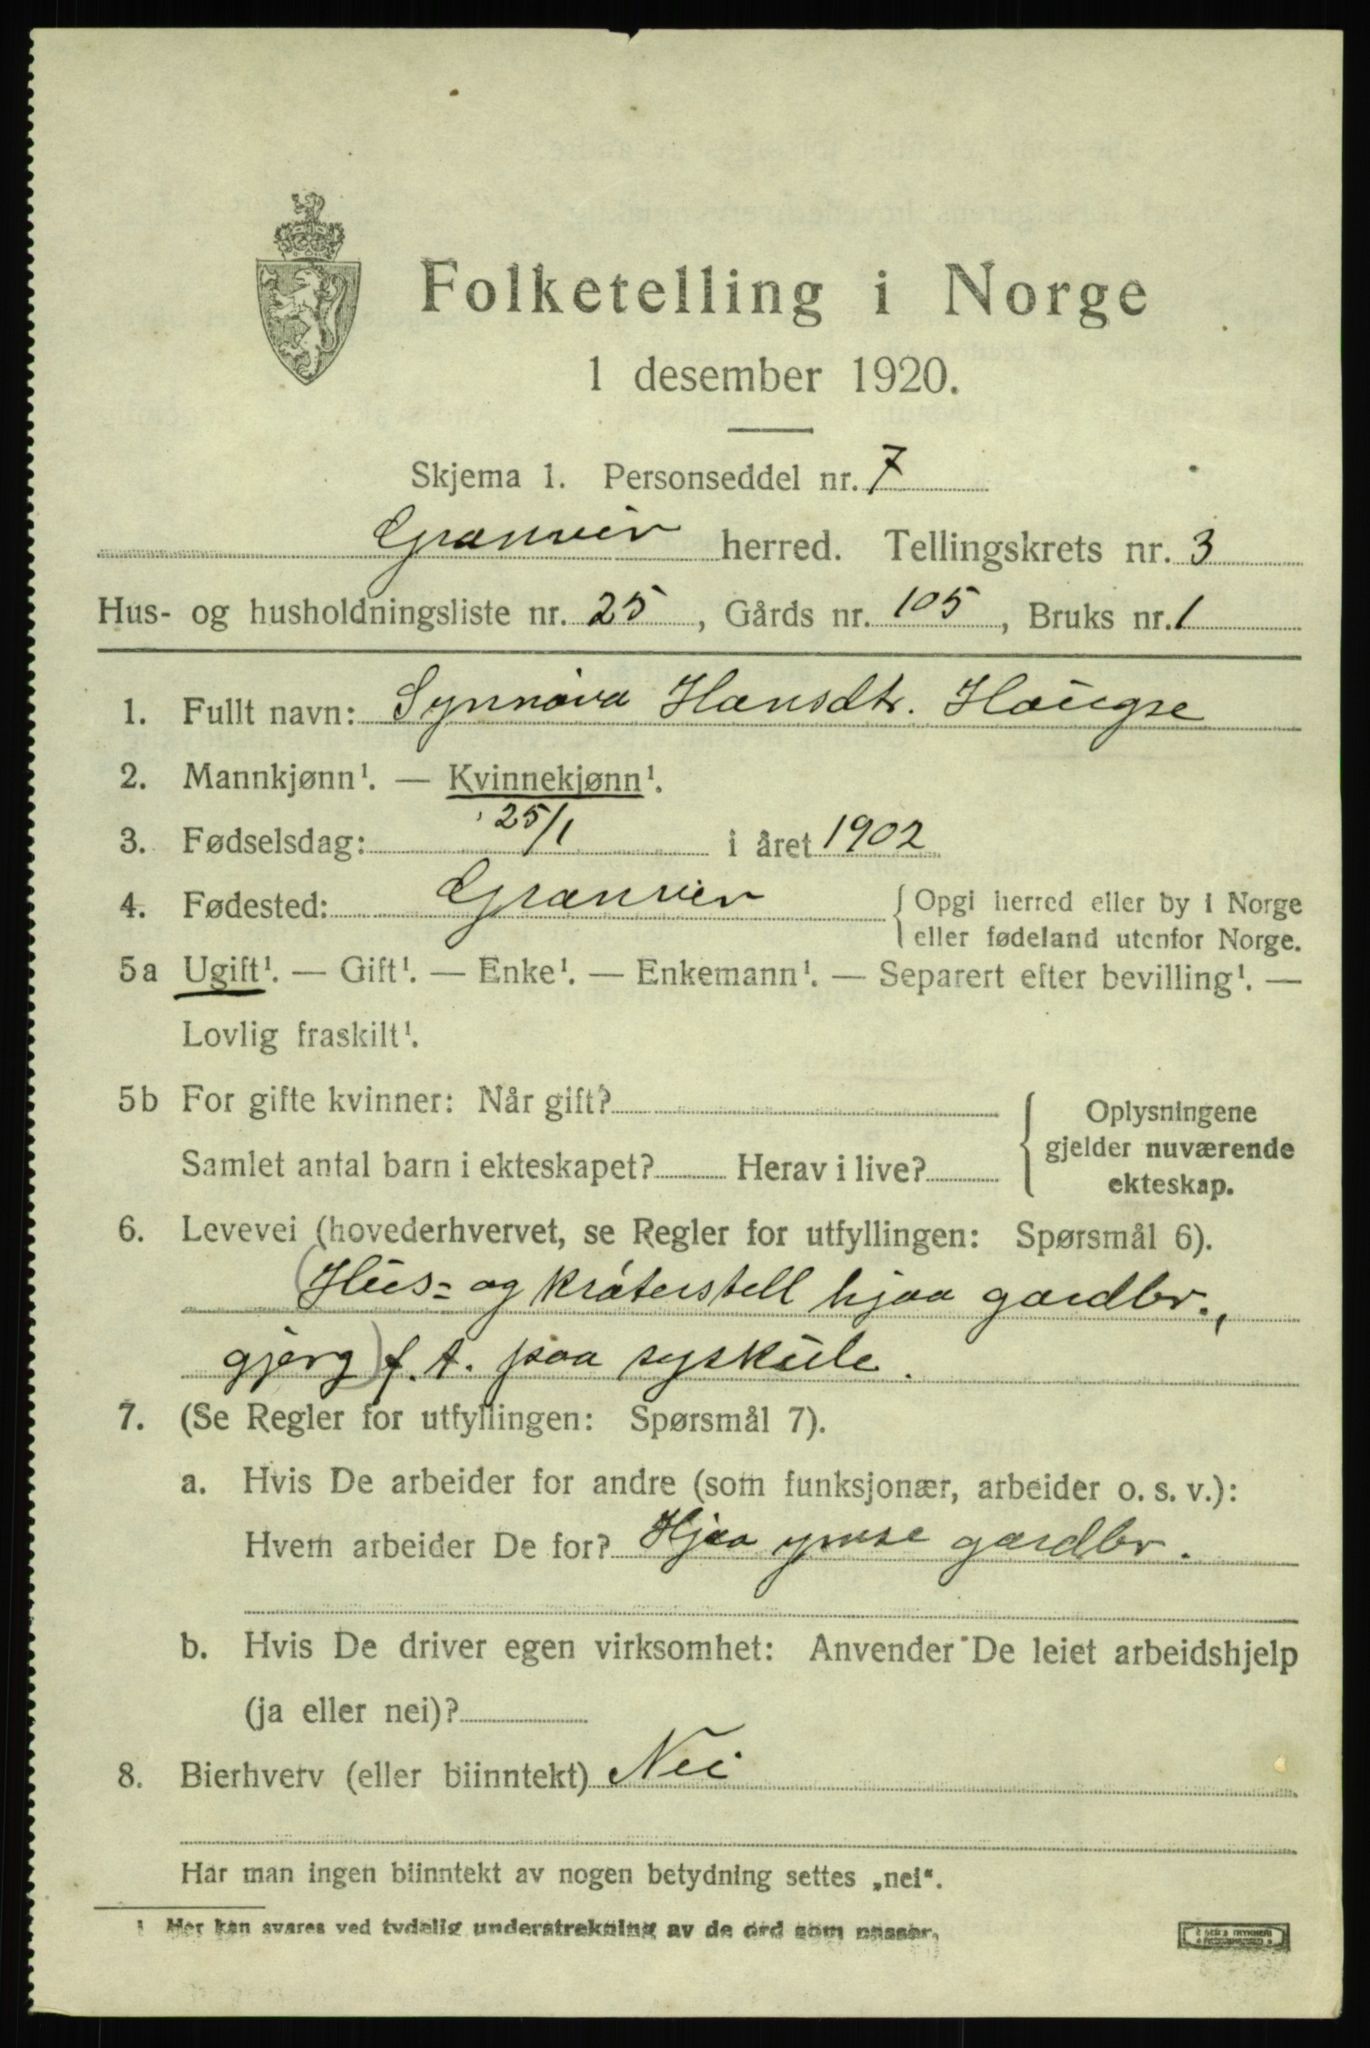 Folketelling i Norge
1 desember 1920.
Skjema 1. Personseddel nr. 7
Granvin herred. Tellingskrets nr. 3
Hus- og husholdningsliste nr. 25, Gårds nr. 105, Bruks nr. 1
1. Fullt navn: Synnøva Hansdtr. Haugse
2. Mannkjønn¹. — Kvinnekjønn¹.
3. Fødselsdag: 25/1 i året 1902
4. Fødested: Granvin { Opgi herred eller by i Norge
eller fødeland utenfor Norge.
5a Ugift¹. — Gift¹. — Enke¹. — Enkemann¹. — Separert efter bevilling¹. —
Lovlig fraskilt¹.
5b For gifte kvinner: Når gift?
Samlet antal barn i ekteskapet? Herav i live?
Oplysningene
gjelder nuværende
ekteskap.
6. Levevei (hovederhvervet, se Regler for utfyllingen: Spørsmål 6).
(Hus- og krøterstell hjaa gardbr.,
gjerg) f. t. paa syskule.
7. (Se Regler for utfyllingen: Spørsmål 7).
a. Hvis De arbeider for andre (som funksjonær, arbeider o. s. v.):
Hvem arbeider De for? Hjaa ymse gardbr.
b. Hvis De driver egen virksomhet: Anvender De leiet arbeidshjelp
(ja eller nei)?
8. Bierhverv (eller biinntekt) Nei
Har man ingen biinntekt av nogen betydning settes „nei“.
1 Her kan svares ved tydelig understrekning av de ord som passer.